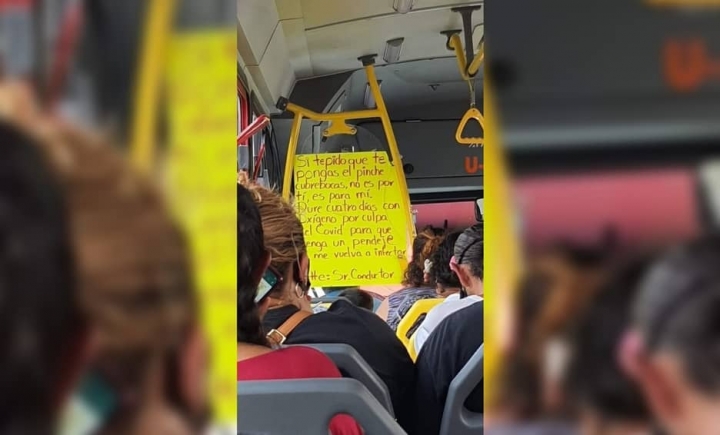 Si tepido que te
pongas el pinche
cubrebocas, no es por
tí, es para mí.
Dure cuatro días con
oxígeno por culpa
el Covid para que
enga un pendeje
me vuelva a infectar
tte: Sr. Conductor
U-
U-